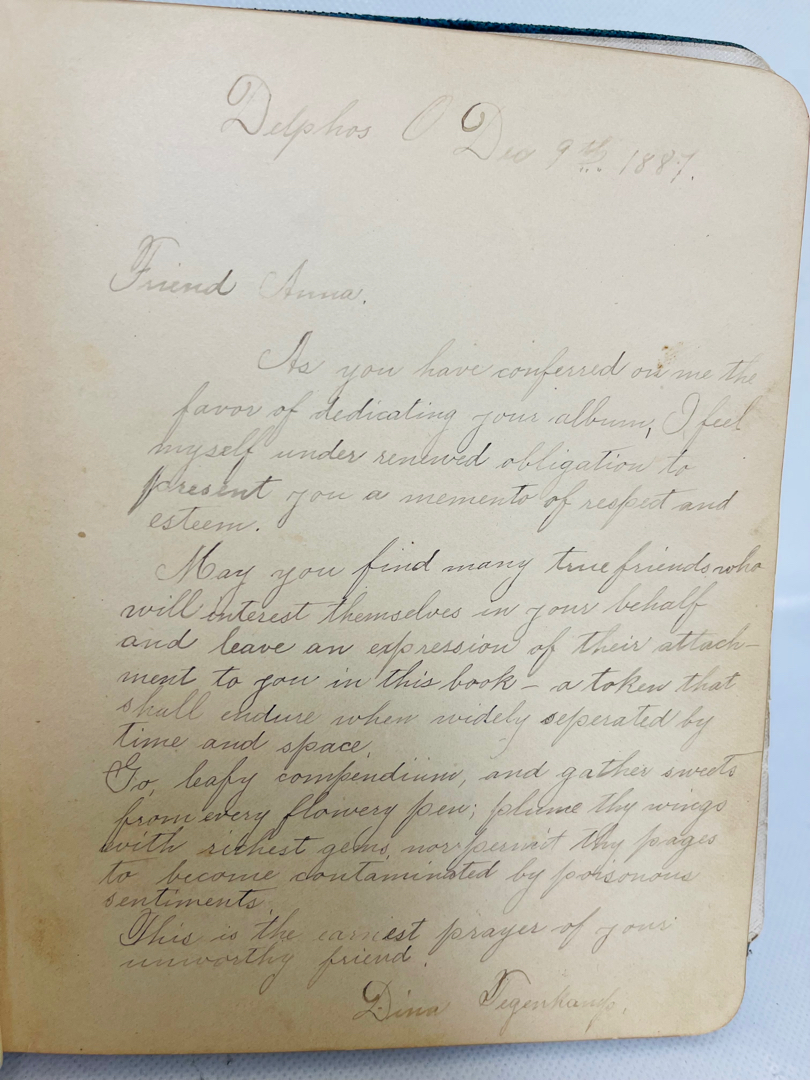 Delphos O Dec 9th 1887.
Friend Anna.
As you have conferred on me the
favor of dedicating your album, I feel
myself under renewed obligation to
present you a memento of respect and
esteem.
May you find many true friends who
will interest themselves in your behalf
and leave an expression of their attach-
ment to you in this book – a token that
shall endure when widely seperated by
time and space.
Go, leafy compendium, and gather sweets
from every flowery pen; plume thy wings
with richest gems, nor permit thy pages
to become contaminated by poisonous
sentiments.
This is the earnest prayer of your
unworthy friend.
Dina Tegenkamp.